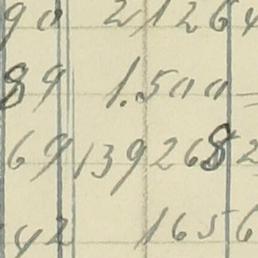 90 21264
89 1.500 —
69 1392682
42 1656